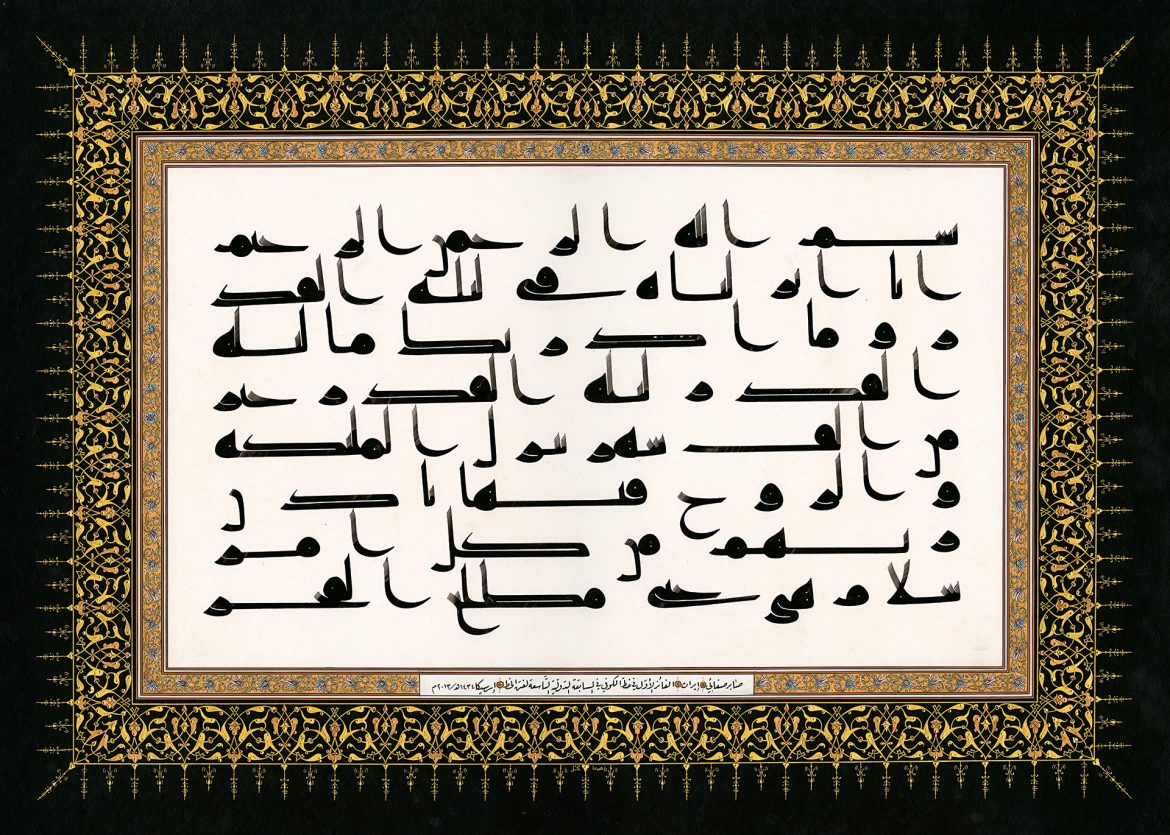 بسم الله الرحمن الرحيم
انا انزلناه في ليلة القد
ر وما ادريك ما ليلة
القدر ليلة القدر خير
من الف شهر تنزل الملئكة
و الروح فيها باذن
ربهم من كل امر
سلام هي حتى مطلع الفجر
صابر صفائي إيران الفائز الأول في خط الكوفي في المسابقة الدولية التاسعة لفن الخط إرسيكا ١٤٣٤هـ/٢٠١٣م